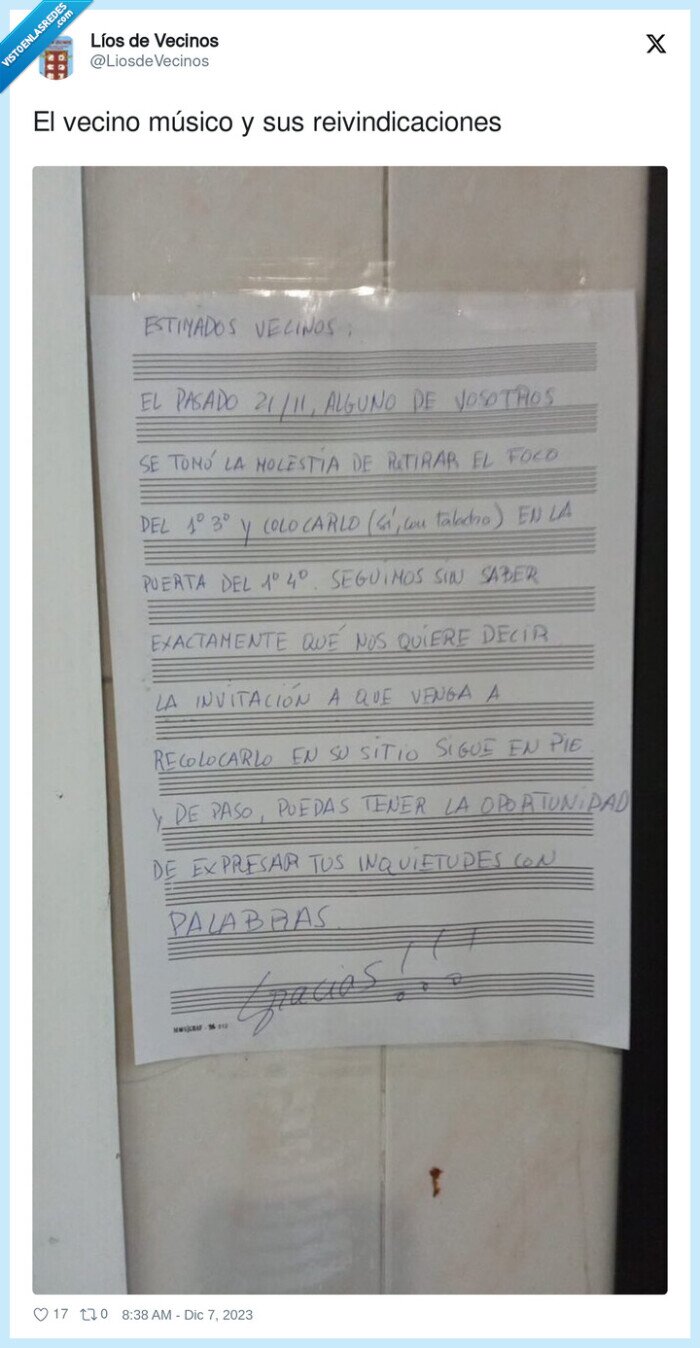 VISTOENLASREDES
.com
Líos de Vecinos
@LiosdeVecinos
El vecino músico y sus reivindicaciones
ESTIMADOS VECINOS:
EL PASADO 21/11, ALGUNO DE VOSOTROS
SE TOMÓ LA MOLESTIA DE RETIRAR EL FOCO
DEL 1º 3º Y COLOCARLO (sí, con taladro) EN LA
PUERTA DEL 1º 4º. SEGUIMOS SIN SABER
EXACTAMENTE QUÉ NOS QUIERE DECIR
LA INVITACIÓN A QUE VENGA A
RECOLOCARLO EN SU SITIO SIGUE EN PIE
Y DE PASO, PUEDAS TENER LA OPORTUNIDAD
DE EXPRESAR TUS INQUIETUDES CON
PALABRAS.
Gracias!!!
17 0 8:38 AM - Dic 7, 2023